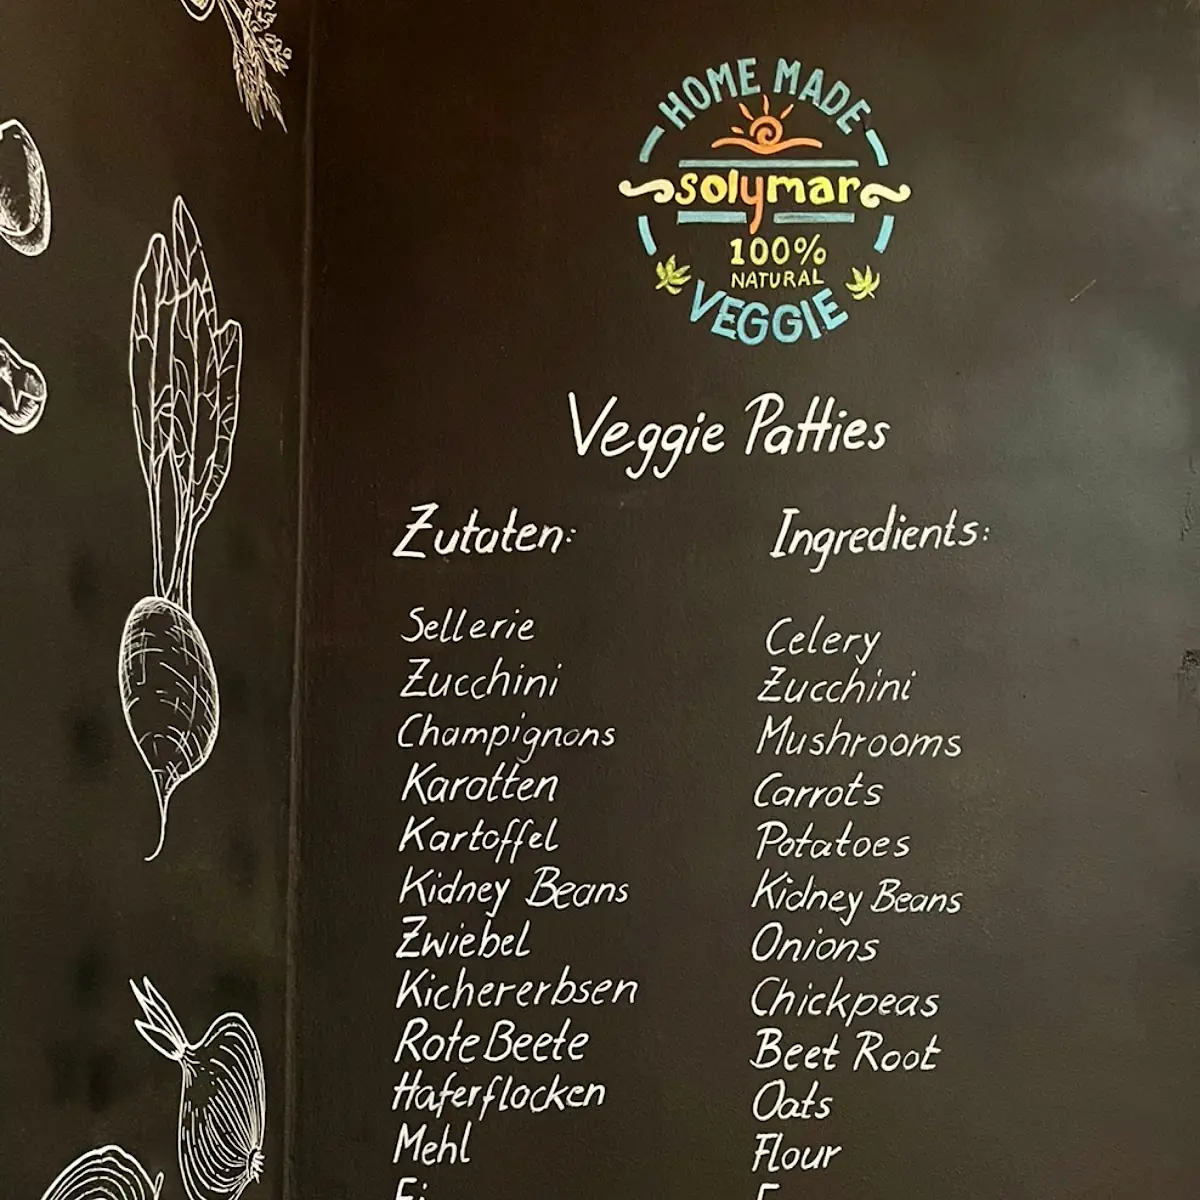 HOME MADE
solymar
100%
NATURAL
VEGGIE
Veggie Patties
Zutaten:
Sellerie
Zucchini
Champignons
Karotten
Kartoffel
Kidney Beans
Zwiebel
Kichererbsen
Rote Beete
Haferflocken
Mehl
Ingredients:
Celery
Zucchini
Mushrooms
Carrots
Potatoes
Kidney Beans
Onions
Chickpeas
Beet Root
Oats
Flour